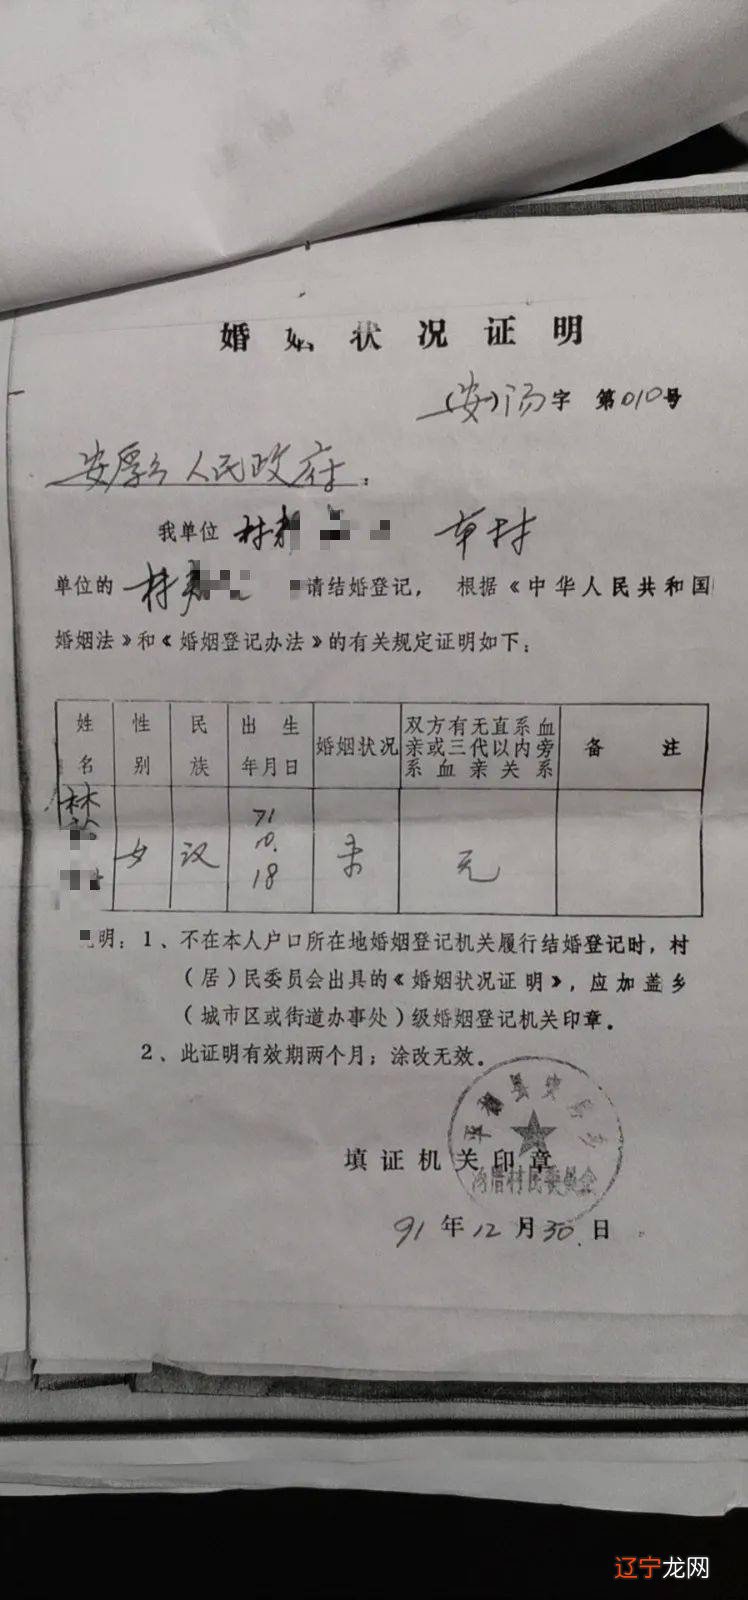 婚姻状况证明
(安)汤字 第010号
安厚乡人民政府：
我单位 林 草村
单位的 林 请结婚登记， 根据《中华人民共和国
婚姻法》和《婚姻登记办法》的有关规定证明如下：
姓名 性别 民族 出生年月日 婚姻状况 双方有无直系血亲或三代以内旁系血亲关系 备注
林 女 汉 71 10. 18 未 无
明：1、不在本人户口所在地婚姻登记机关履行结婚登记时，村
（居）民委员会出具的《婚姻状况证明》，应加盖乡
（城市区或街道办事处）级婚姻登记机关印章。
2、此证明有效期两个月；涂改无效。
平和县安厚乡
村民委员会
填证机关印章
91年12月30日
辽宁龙网